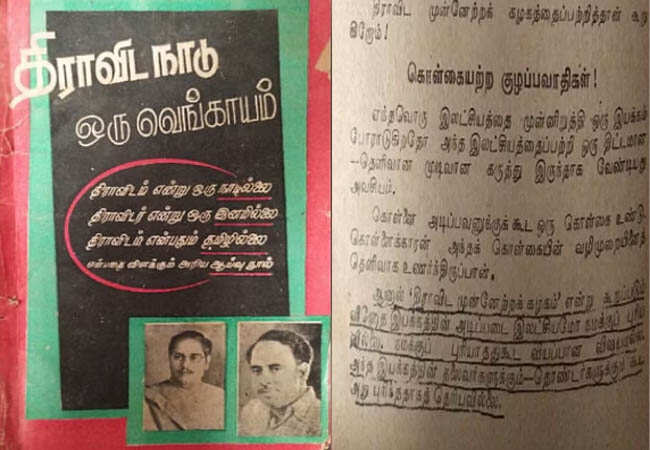 திராவிட நாடு
ஒரு வெங்காயம்
திராவிடம் என்று ஒரு நாடில்லை
திராவிடர் என்று ஒரு இனமில்லை
திராவிடம் என்பதும் தமிழில்லை
என்பதை விளக்கும் அரிய ஆய்வு நூல்
திராவிட முன்னேற்றக் கழகத்தைப்பற்றித்தான் கூறு
கிறேம்!
கொள்கையற்ற குழப்பவாதிகள்!
எந்தவொரு இலட்சியத்தை முன்னிறுத்தி ஒரு இயக்கம்
போராடுகிறதோ அந்த இலட்சியத்தைப்பற்றி ஒரு திட்டமான
—தெளிவான முடிவான கருத்து இருந்தாக வேண்டியது
அவசியம்.
கொள்ளை அடிப்பவனுக்குக்கூட ஒரு கொள்கை உண்டு
கொள்ளைக்காரன் அந்தக் கொள்கையின் வழிமுறையினைத்
தெளிவாக உணர்ந்திருப்பான்.
ஆனால் 'திராவிட முன்னேற்றக் கழகம்' என்று கூறப்படும்
விந்தை இயக்கத்தின் அடிப்படை இலட்சியமோ நமக்குப் புரிய
வில்லை. நமக்குப் புரியாததுகூட வியப்பான விஷயமல்ல.
அந்த இயக்கத்தின் தலைவர்களுக்கும்—தொண்டர்களுக்கும் கூட
அது புரிந்ததாகத் தெரியவில்லை.